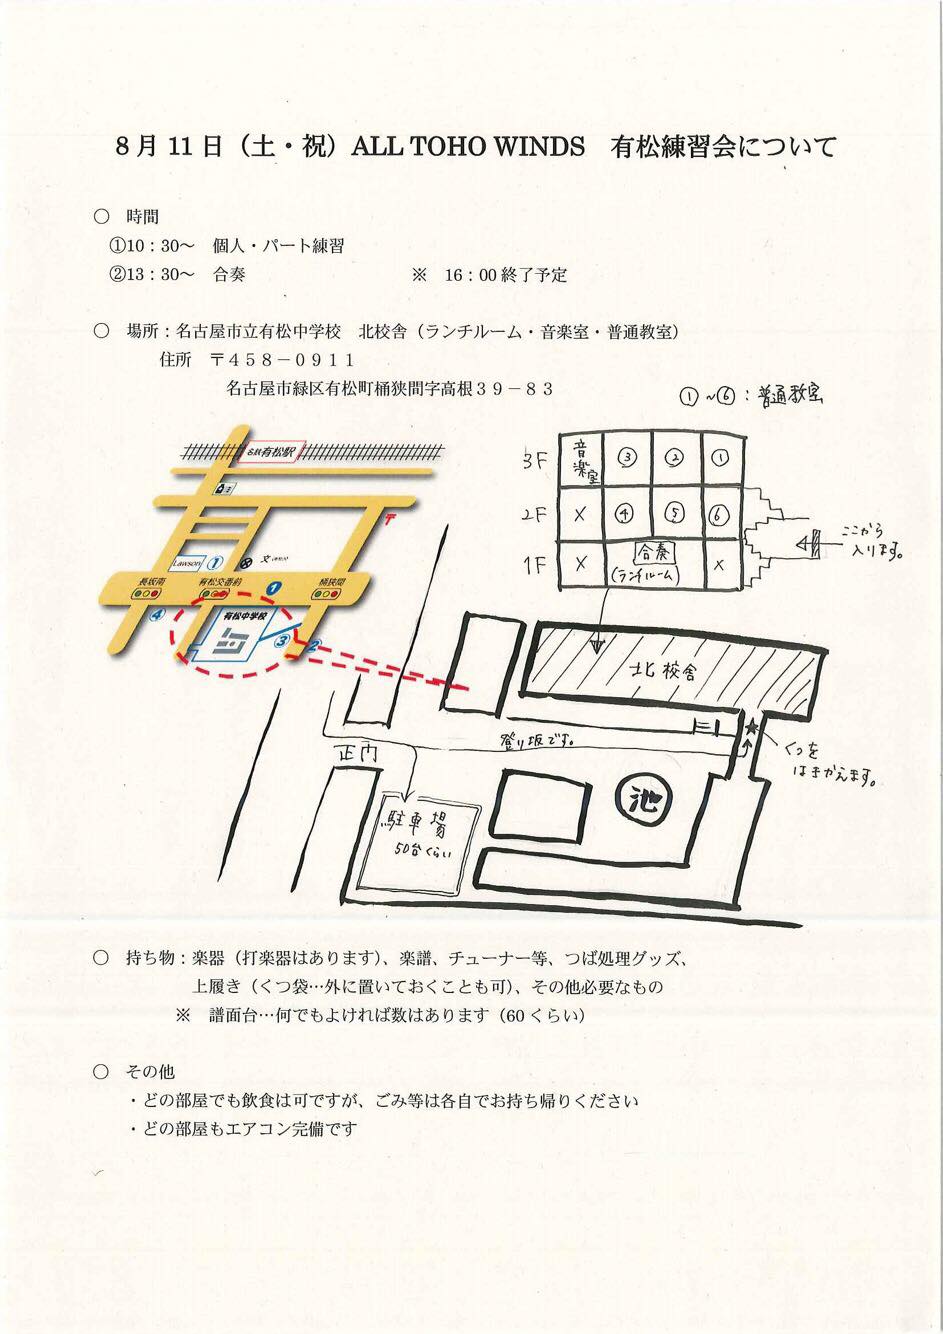 8月11日（土・祝）ALL TOHO WINDS　有松練習会について
○　時間
①10：30～　個人・パート練習
②13：30～　合奏　※　16：00終了予定
○　場所：名古屋市立有松中学校　北校舎（ランチルーム・音楽室・普通教室）
住所　〒４５８－０９１１
名古屋市緑区有松町桶狭間字高根３９－８３
①～⑥：普通教室
名鉄有松駅
〒
Lawson
①
文
長坂南
有松交番前
桶狭間
①
④
有松中学校
③
2
3F
音楽室
③
②
①
2F
×
④
⑤
⑥
1F
×
合奏
（ランチルーム）
×
ここから
入ります。
北校舎
登り坂です。
★
くつを
はきかえます。
正門
池
駐車場
50台くらい
○　持ち物：楽器（打楽器はあります）、楽譜、チューナー等、つば処理グッズ、
上履き（くつ袋…外に置いておくことも可）、その他必要なもの
※　譜面台…何でもよければ数はあります（60くらい）
○　その他
・どの部屋でも飲食は可ですが、ごみ等は各自でお持ち帰りください
・どの部屋もエアコン完備です